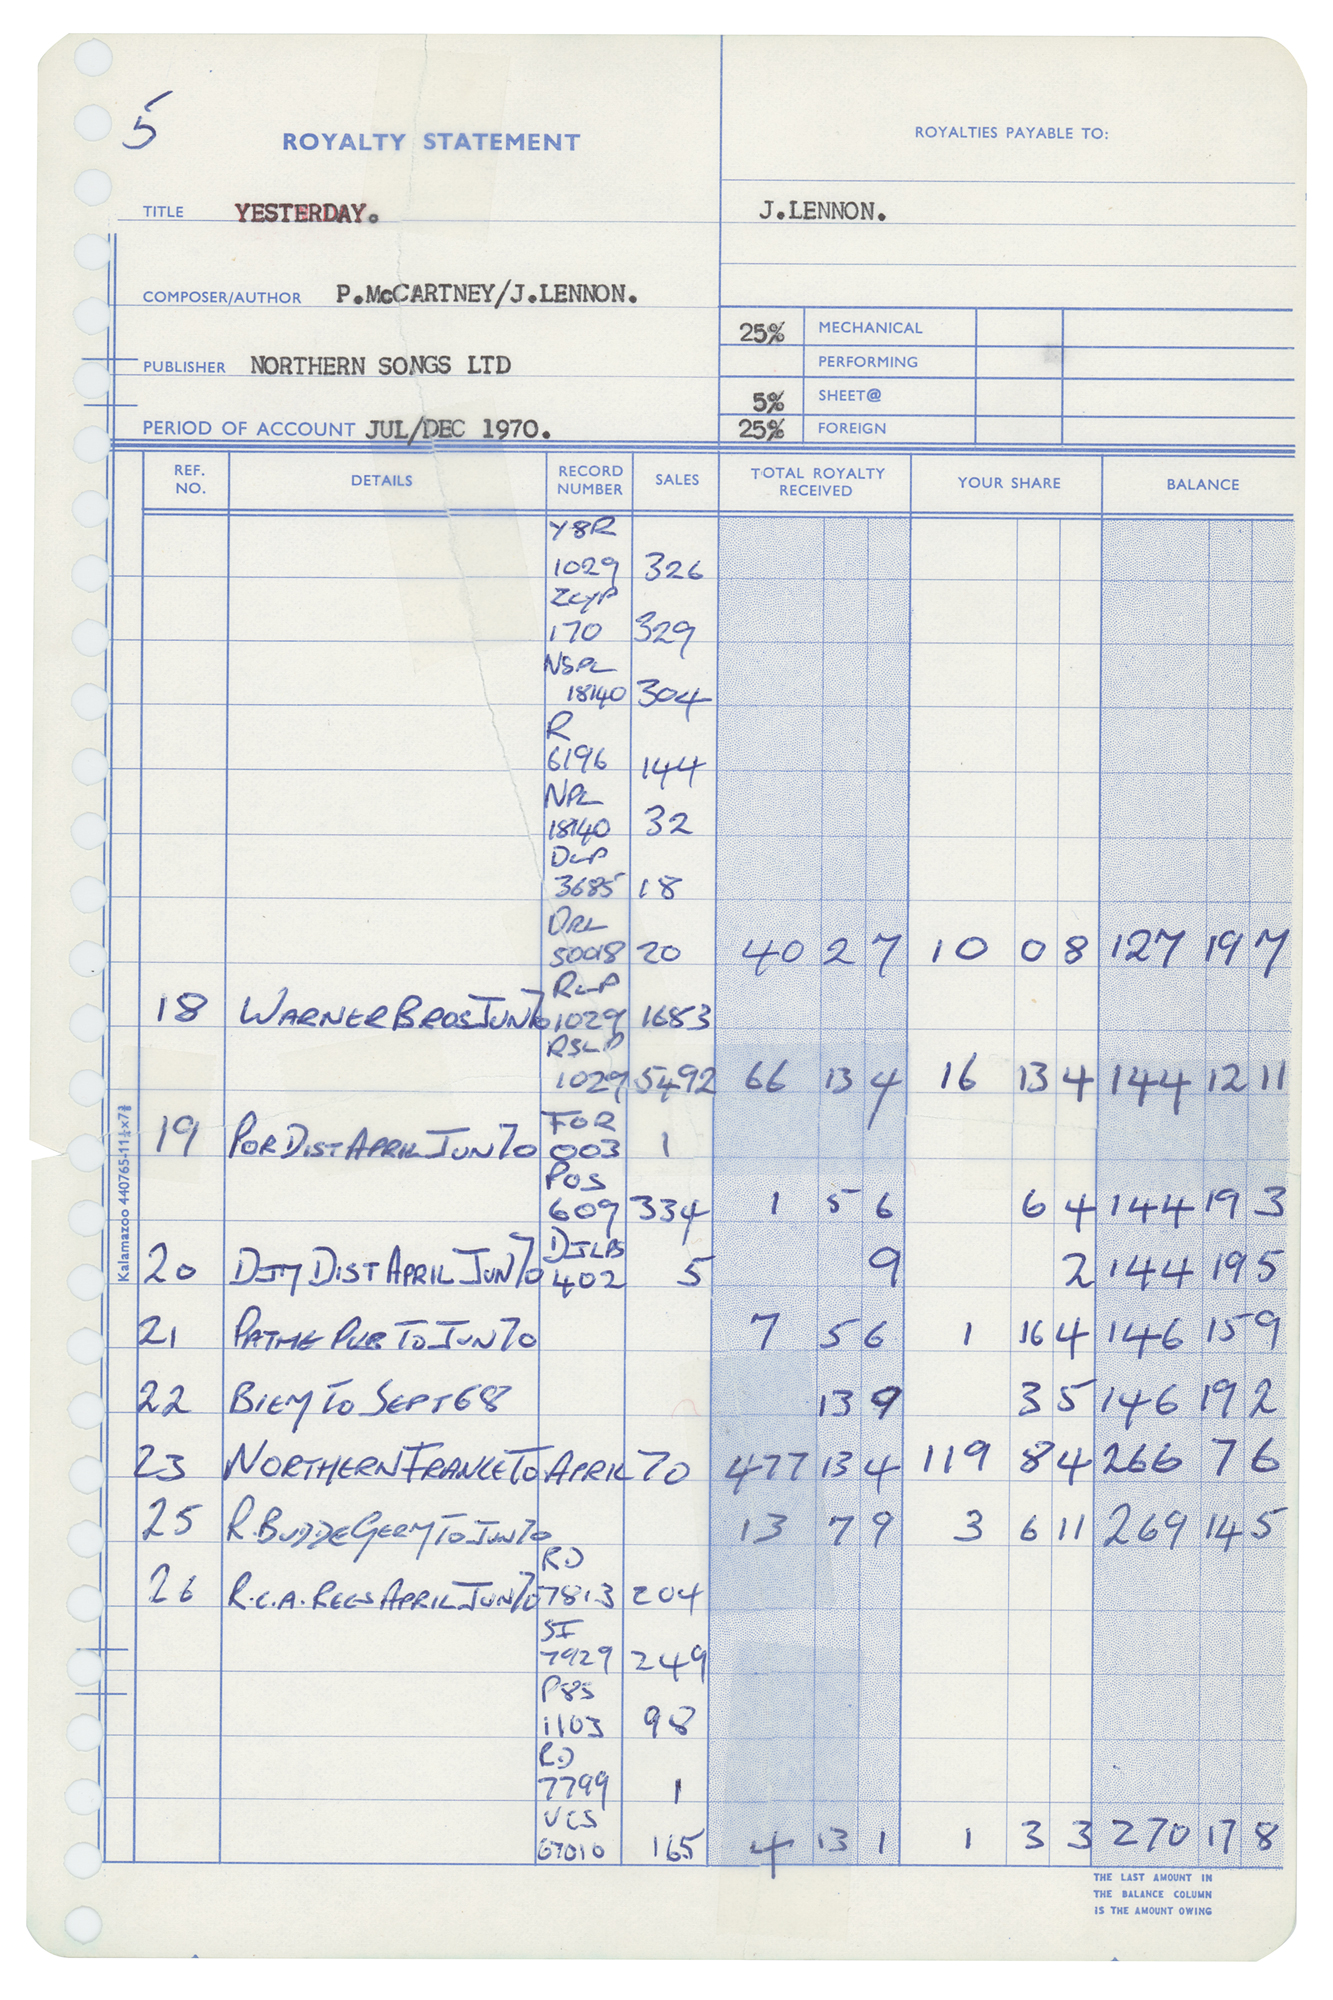 5
ROYALTY STATEMENT
ROYALTIES PAYABLE TO:
TITLE YESTERDAY.
J.LENNON.
COMPOSER/AUTHOR P.McCARTNEY/J.LENNON.
25% MECHANICAL
PUBLISHER NORTHERN SONGS LTD
PERFORMING
5% SHEET@
PERIOD OF ACCOUNT JUL/DEC 1970.
25% FOREIGN
REF. NO. DETAILS RECORD NUMBER SALES TOTAL ROYALTY RECEIVED YOUR SHARE BALANCE
Y8R
1029 326
ZCYP
170 329
NSPL
18140 304
R
6196 144
NPL
18140 32
DLP
3685 18
DRL
50018 20 40 2 7 10 0 8 127 19 7
RLP
18 WARNER BROS JUN 70 1029 1683
RSLP
1029 5492 66 13 4 16 13 4 144 12 11
FOR
19 POR DIST APRIL JUN 70 003 1
POS
609 334 1 5 6 6 4 144 19 3
DJLPS
20 DJM DIST APRIL JUN 70 402 5 9 2 144 19 5
21 PATHE PUB TO JUN 70 7 5 6 1 16 4 146 15 9
22 BIEM TO SEPT 68 13 9 3 5 146 19 2
23 NORTHERN FRANCE TO APRIL 70 477 13 4 119 8 4 266 7 6
25 R. BUDDE GERMY TO JUN 70 13 7 9 3 6 11 269 14 5
RD
26 R.C.A. RECS APRIL JUN 70 7813 204
SF
7929 249
P8S
1103 98
RD
7799 1
VCS
67010 165 4 13 1 1 3 3 270 17 8
THE LAST AMOUNT IN
THE BALANCE COLUMN
IS THE AMOUNT OWING
Kalamazoo 440765-11¼x7⅜